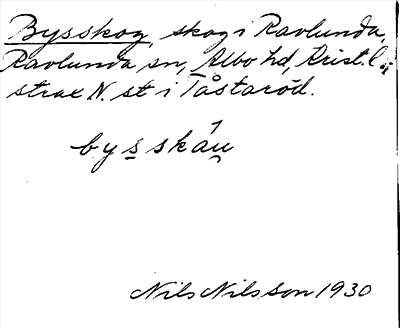 Bysskog, skog i Ravlunda,
Ravlunda sn, Albo hd, Krist. l;
strax N. st i Tåstaröd.
bysskáu̯
Nils Nilsson 1930